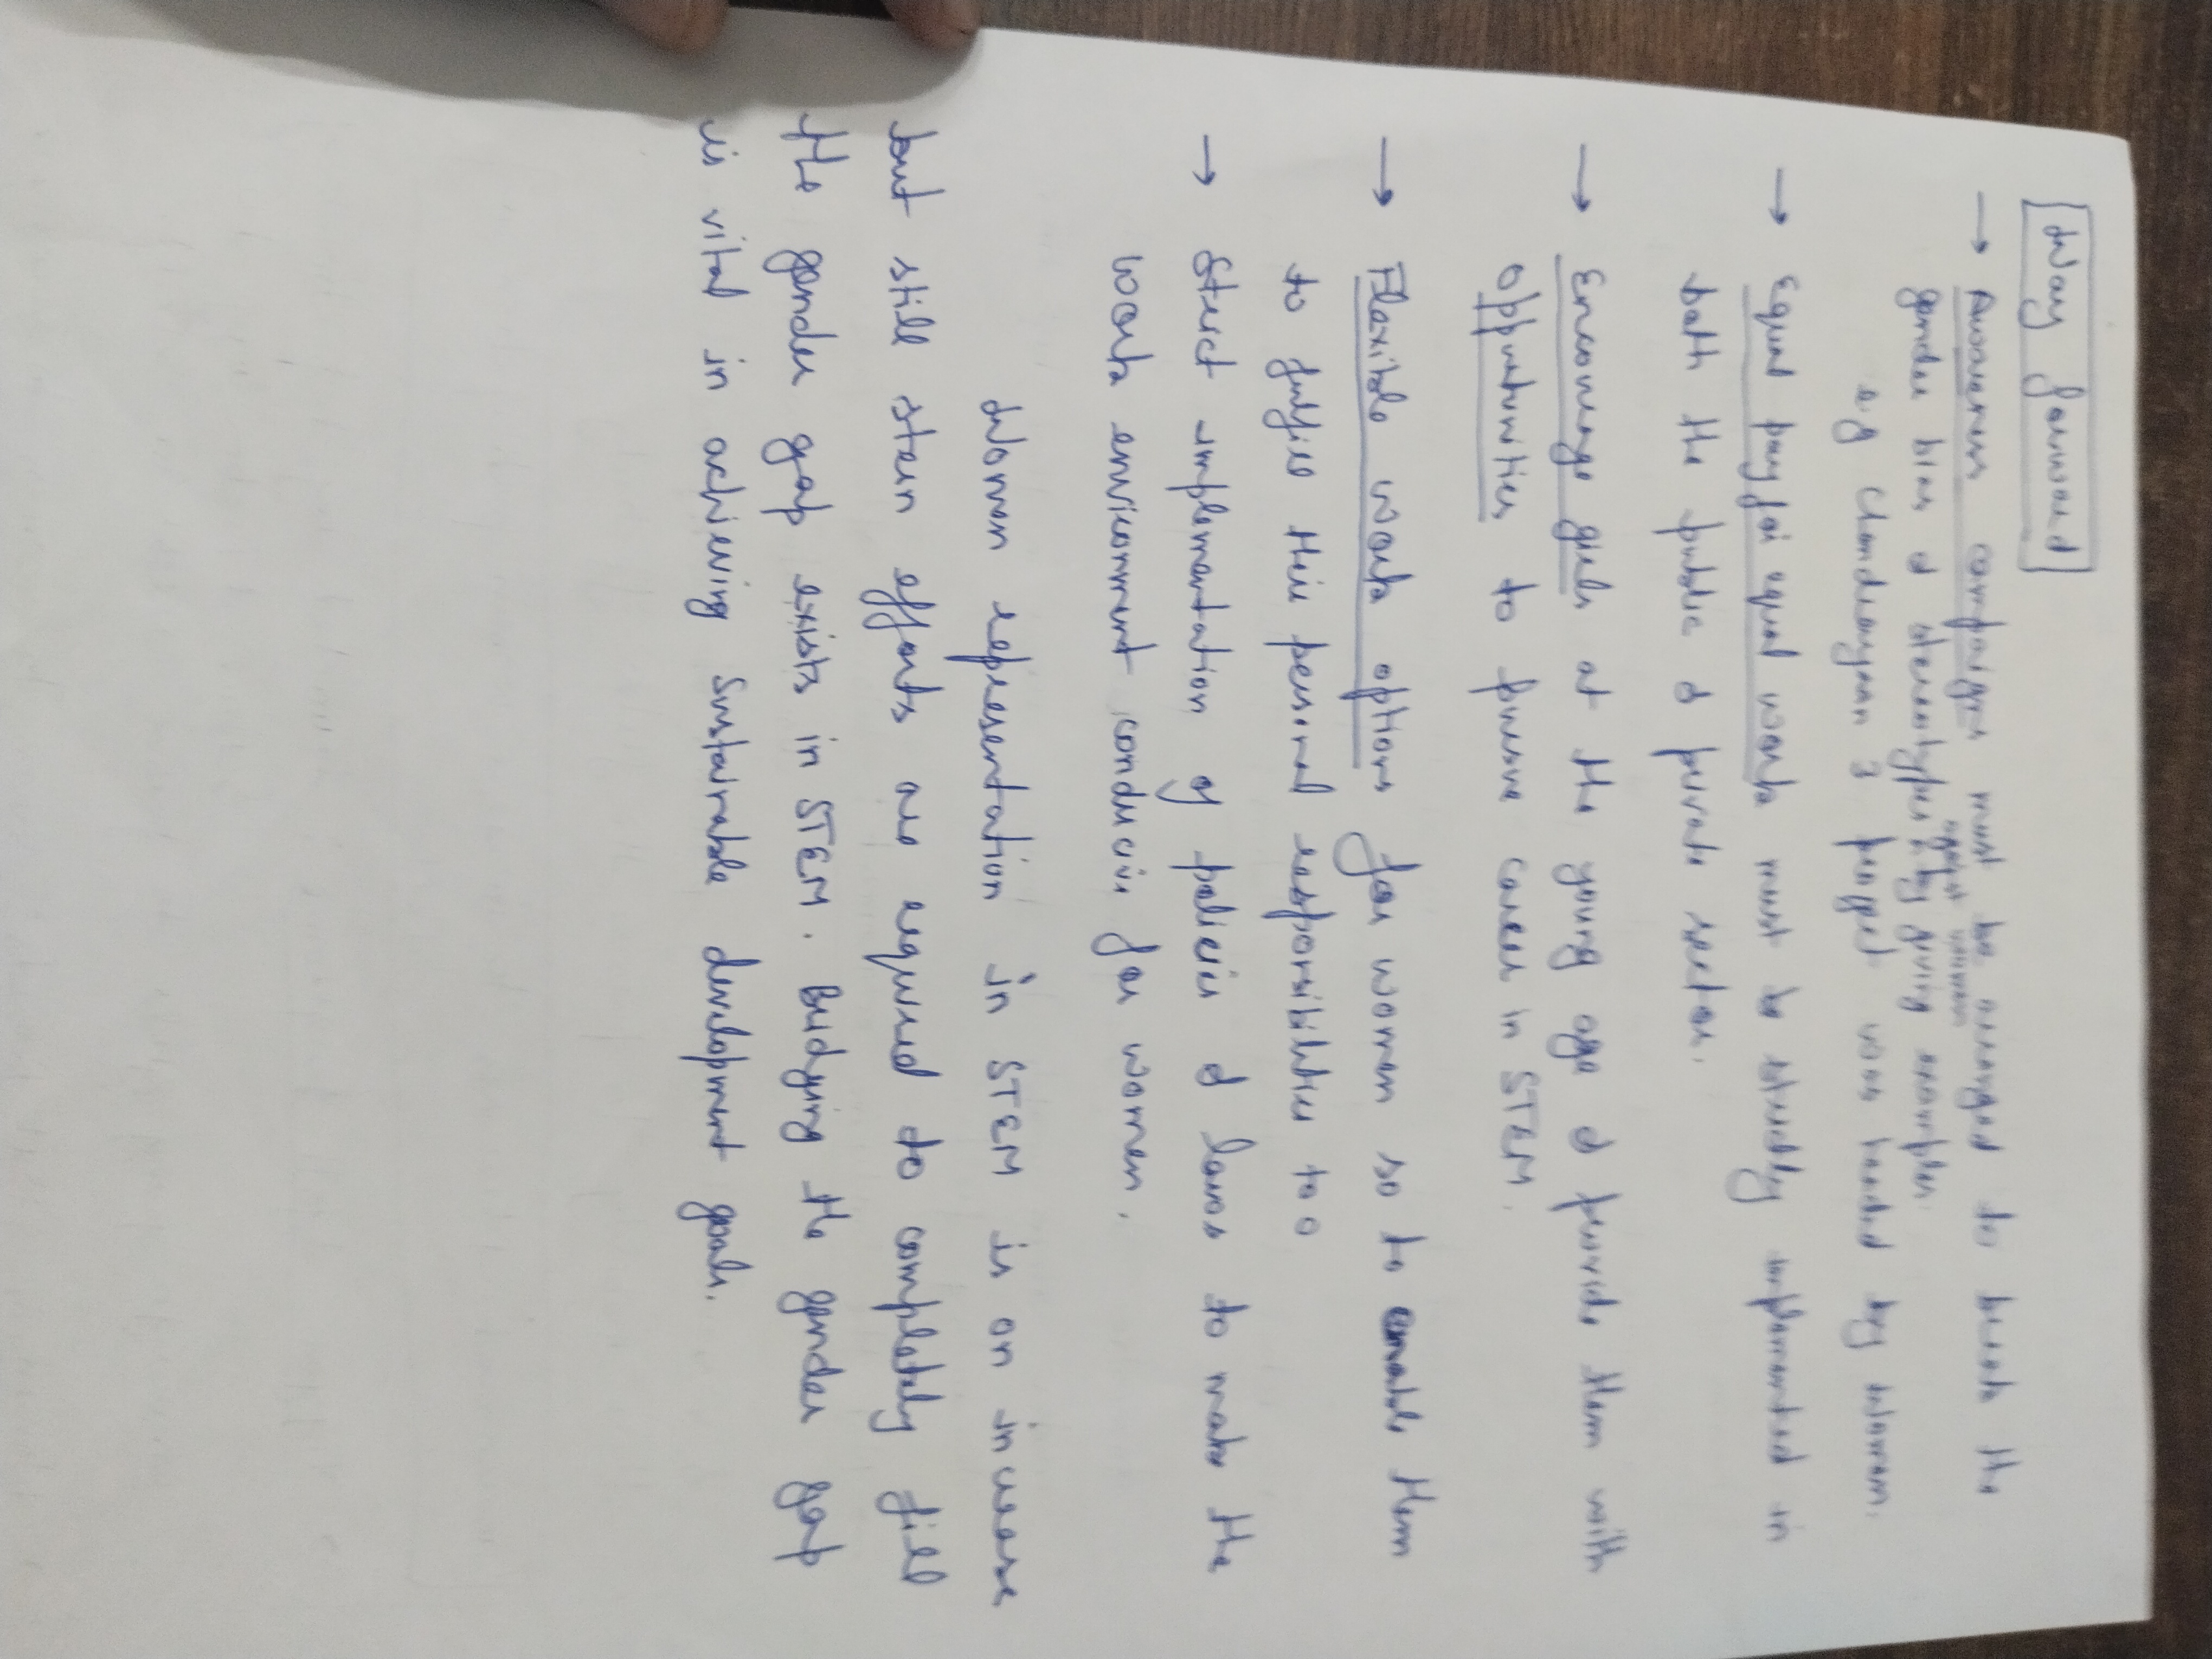 Way forward
→ Awareness campaigns must be arranged to break the
gender bias & stereotypes against women by giving examples.
e.g Chandrayan 3 project was headed by woman.
→ Equal pay for equal work must be strictly implemented in
both the public & private sector.
→ Encourage girls at the young age & provide them with
opputunities to pursue career in STEM.
→ Flexible work options for women so to enable them
to fulfill their personal responsibilities too
→ Strict implementation of policies & laws to make the
work environment conducive for women.
Women representation in STEM is on increase
but still steen efforts are required to completely fill
the gender gap exists in STEM. Bridging the gender gap
is vital in achieving Sustainable development goals.